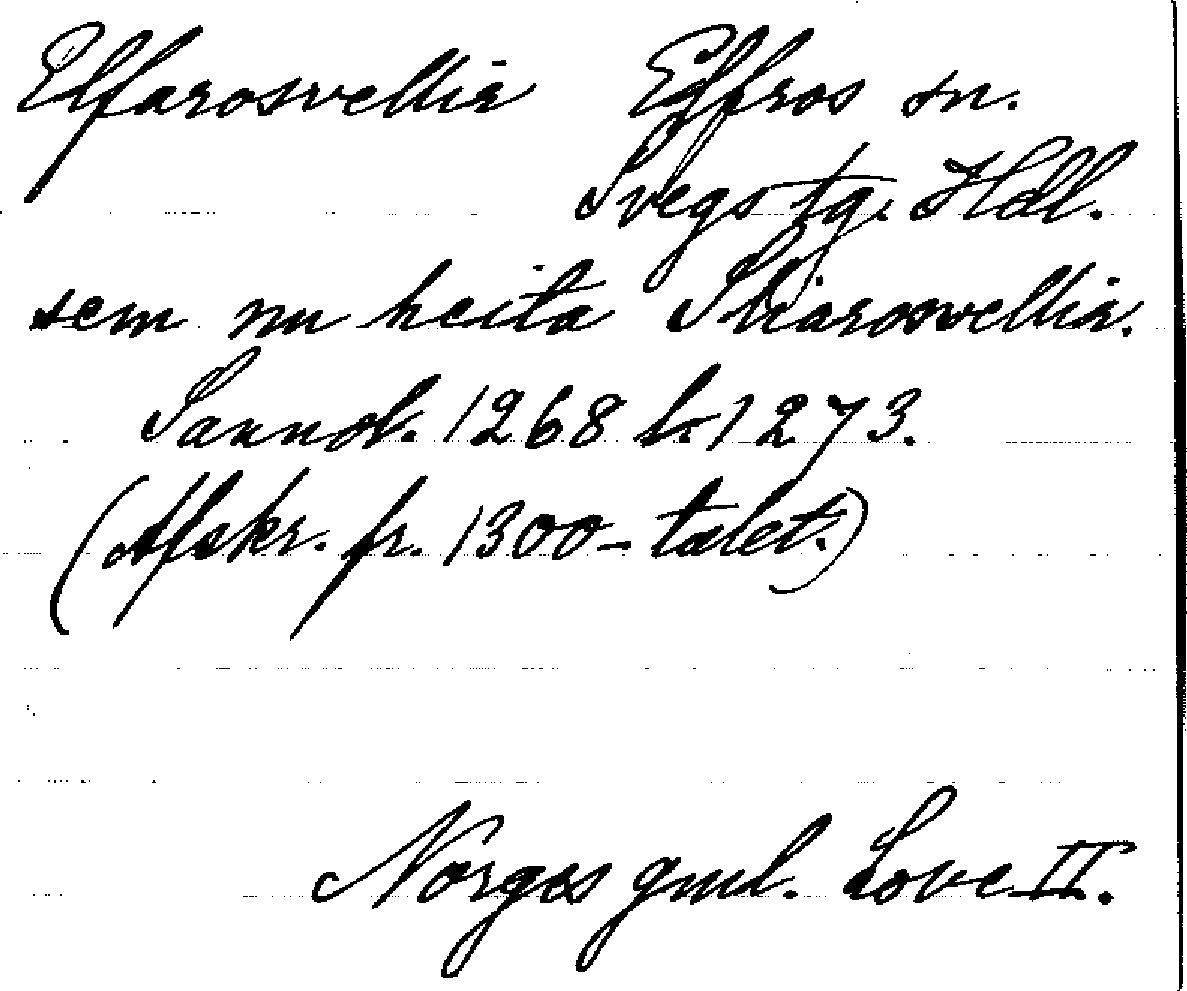 Elfarosvellir Elfros sn.
Svegs tg. Hdl.
sem nu heita Skiarosvellir.
Sannol. 1268 l. 1273.
(Afskr. fr. 1300-talet.)
Norges gml. Love II.